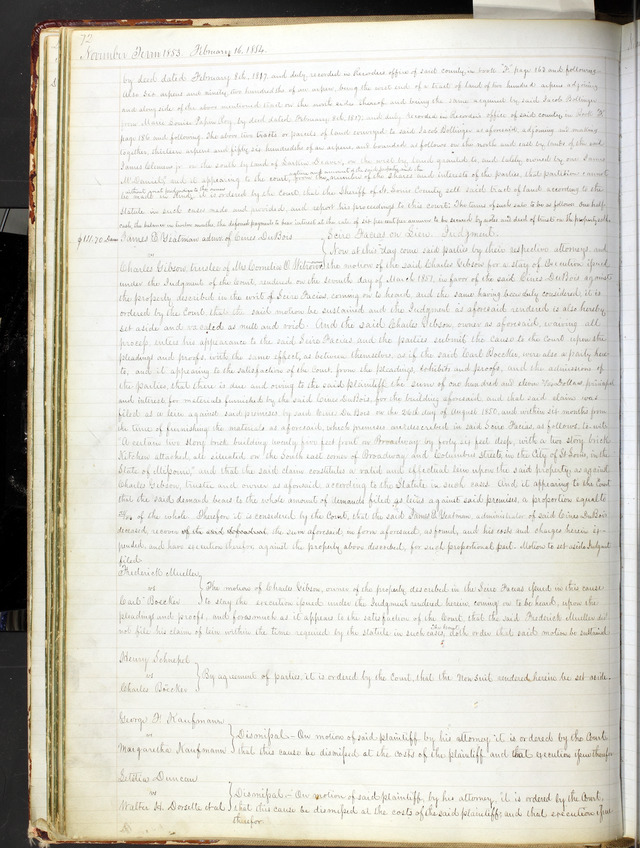 72
November Term 1853. February 16, 1854.
by deed dated February 8th, 1817 and duly recorded in Recorders office of said county, in Book "F" page 163 and following
Also Six arpens and ninety two hundredths of an arpen, being the west end of a tract of land of two hundred arpens adjoining
and along side of the above mentioned tract on the north side thereof and being the same acquired by said Jacob Bollinger
from Marie Louise Papin by deed dated February 8th, 1817, and duly Recorded in Recorders office of said county, in Book F.
page 186 and following. The above two tracts or parcels of land conveyed to said Jacob Bollinger as aforesaid, adjoining and making
together thirteen arpens and fifty six hundredths of an arpen, and bounded as follows on the north and east by lands of the said
James Clemens, jr. on the south by land of Larkin Deaver, on the west by land granted to, and lately owned by one James
McDaniel, and it appearing to the court, from the number of the shares and interests of the parties, that partition cannot
be made in kind, without great prejudice to the owners it is ordered by the court that the Sheriff of St. Louis County sell said tract of land according to the
Statute in such cases made and provided and report his proceedings to this court. The terms of sale to be as follows: One half
cash, the balance in twelve months, the deferred payments to bear interest at the rate of six per cent per annum to be secured by notes and deed of trust on the property sold.
$111.70 Dam James E. Yeatman admr. of Cines DuBois } Scire Facias on Lien Judgment.
vs Now at this day come said parties by their respective attorneys, and
Charles Gibson trustee of Mrs Cornelia O. the motion of the said Charles Gibson for a stay of execution issued
under the Judgment of the Court, rendered on the seventh day of March 1851, in favor of the said Cines DuBois against
the property described in the writ of Scire Facias, coming on to be heard and the same having been duly considered, it is
ordered by the Court, that the said motion be sustained and the Judgment as aforesaid rendered is also hereby
set aside and vacated as null and void. And the said Charles Gibson, owner as aforesaid, waiving all
process, enters his appearance to the said Scire Facias and the parties submit the cause to the Court upon the
pleadings and proofs, with the same effect, as between themselves, as if the said Carl Boecker were also a party here-
to, and it appearing to the satisfaction of the Court from the pleadings, exhibits and proofs, and the admissions of
the parties, that there is due and owing to the said plaintiff the sum of one hundred and eleven 70/100 Dollars, principal
and interest for materials furnished by the said Cines DuBois, for the building aforesaid, and that said claim was
filed as a lien against said premises, by said Cines DuBois on the 24th day of August 1850, and within six months from
the time of furnishing the materials as aforesaid, which premises are described in said Scire Facias, as follows, to wit:
"A certain two story brick building twenty five feet front on Broadway by forty six feet deep, with a two story brick
Kitchen attached, all situated on the South east corner of Broadway and Columbus streets, in the City of St. Louis, in the
State of Missouri," and that the said claim constitutes a valid and effectual lien upon the said property, as against
Charles Gibson, trustee and owner as aforesaid according to the Statute in such cases. And it appearing to the Court
that the said demand bears to the whole amount of demands filed as liens against said premises, a proportion equal to
of the whole. Therefore it is considered by the Court, that the said James E. Yeatman, administrator of said Cines DuBois
deceased, recover of the said defendant, the sum aforesaid, in form aforesaid, as found, and his costs and charges herein ex-
pended, and have execution therefor, against the property above described, for such proportional part. Motion to set aside Judgment
filed.
Frederick Mueller
vs } The motion of Charles Gibson, owner of the property described in the Scire Facias issued in this cause
Carl Boecker to stay the execution issued under the Judgment rendered herein coming on to be heard, upon the
pleadings and proofs, and forasmuch as it appears to the satisfaction of the Court, that the said Frederick Mueller did
not file his claim of lien within the time required by the statute in such cases, the Court doth order that said motion be sustained.
Henry Schnepel
vs } By agreement of parties, it is ordered by the Court, that the Non Suit rendered herein be set aside.
Charles Böcker
George F. Kaufmann
vs } Dismissal - On motion of said plaintiff by his attorney, it is ordered by the Court,
Margaretha Kaufmann that this cause be dismissed at the costs of the plaintiff and that execution issue therefor.
Letitia Duncan
vs } Dismissal - On motion of said plaintiff, by his attorney, it is ordered by the Court,
Walter H. Dorsette et al that this cause be dismissed at the costs of the said plaintiff; and that execution issue
therefor.